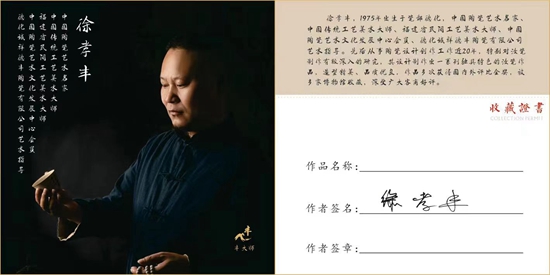 徐孝丰
中国陶瓷艺术名家
中国传统工艺美术大师
福建省民间工艺美术大师
中国陶瓷艺术文化发展中心会员
德化诚祥德丰陶瓷有限公司艺术指导
丰大师
徐孝丰，1975年出生于瓷都德化，中国陶瓷艺术名家、
中国传统工艺美术大师，福建省民间工艺美术大师，中国
陶瓷艺术文化发展中心会员、德化诚祥德丰陶瓷有限公司
艺术指导。先后从事陶瓷设计制作工作近20年，特别对汝瓷
制作有极深入的研究，其设计制作出一系列独具特色的汝瓷作
品，造型精美、品质优良，作品多次获得国内外评比金奖，被
多家博物馆收藏，深受广大客商好评。
收藏證書
COLLECTION
作品名称：
作者签名：徐孝丰
作者签章：